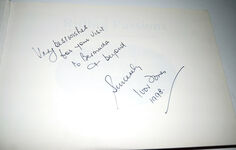 Very best wishes
for your visit
to Bermuda
& beyond
Sincerely
1998